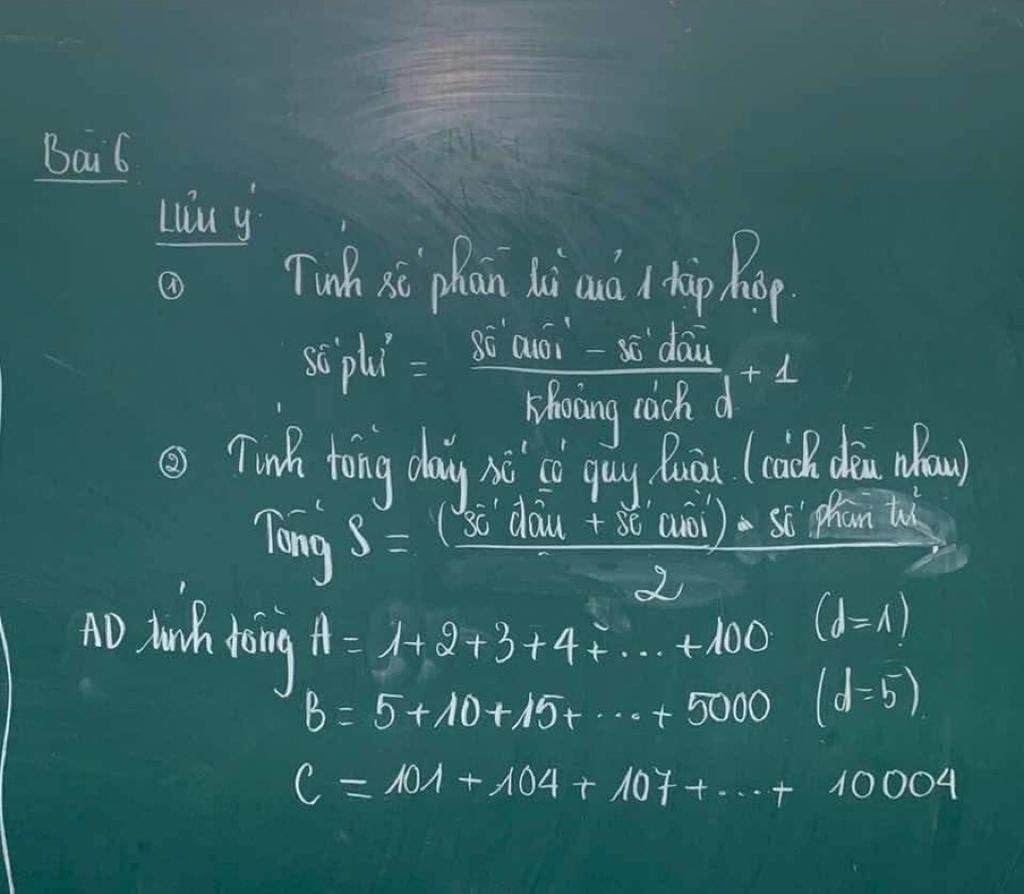 Bài 6
Lưu ý
① Tính số phần tử của 1 tập hợp.
số ptử = (số cuối - số đầu) / (khoảng cách d) + 1
② Tính tổng dãy số có quy luật. (cách đều nhau)
Tổng S = (số đầu + số cuối) . số phần tử / 2
AD tính tổng A = 1+2+3+4+...+100 (d=1)
B = 5+10+15+...+ 5000 (d=5)
C = 101 + 104 + 107 +...+ 10004